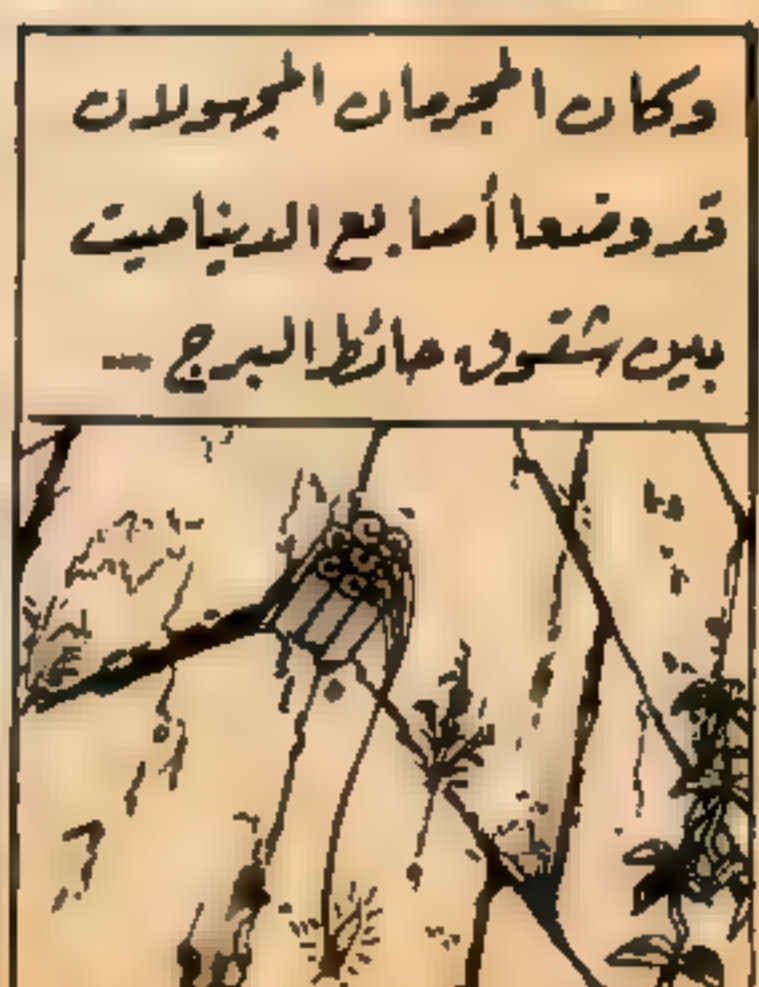 وكان المجرمان المجهولان
قد وضعا أصابع الديناميت
بين شقوق حائط البرج ...